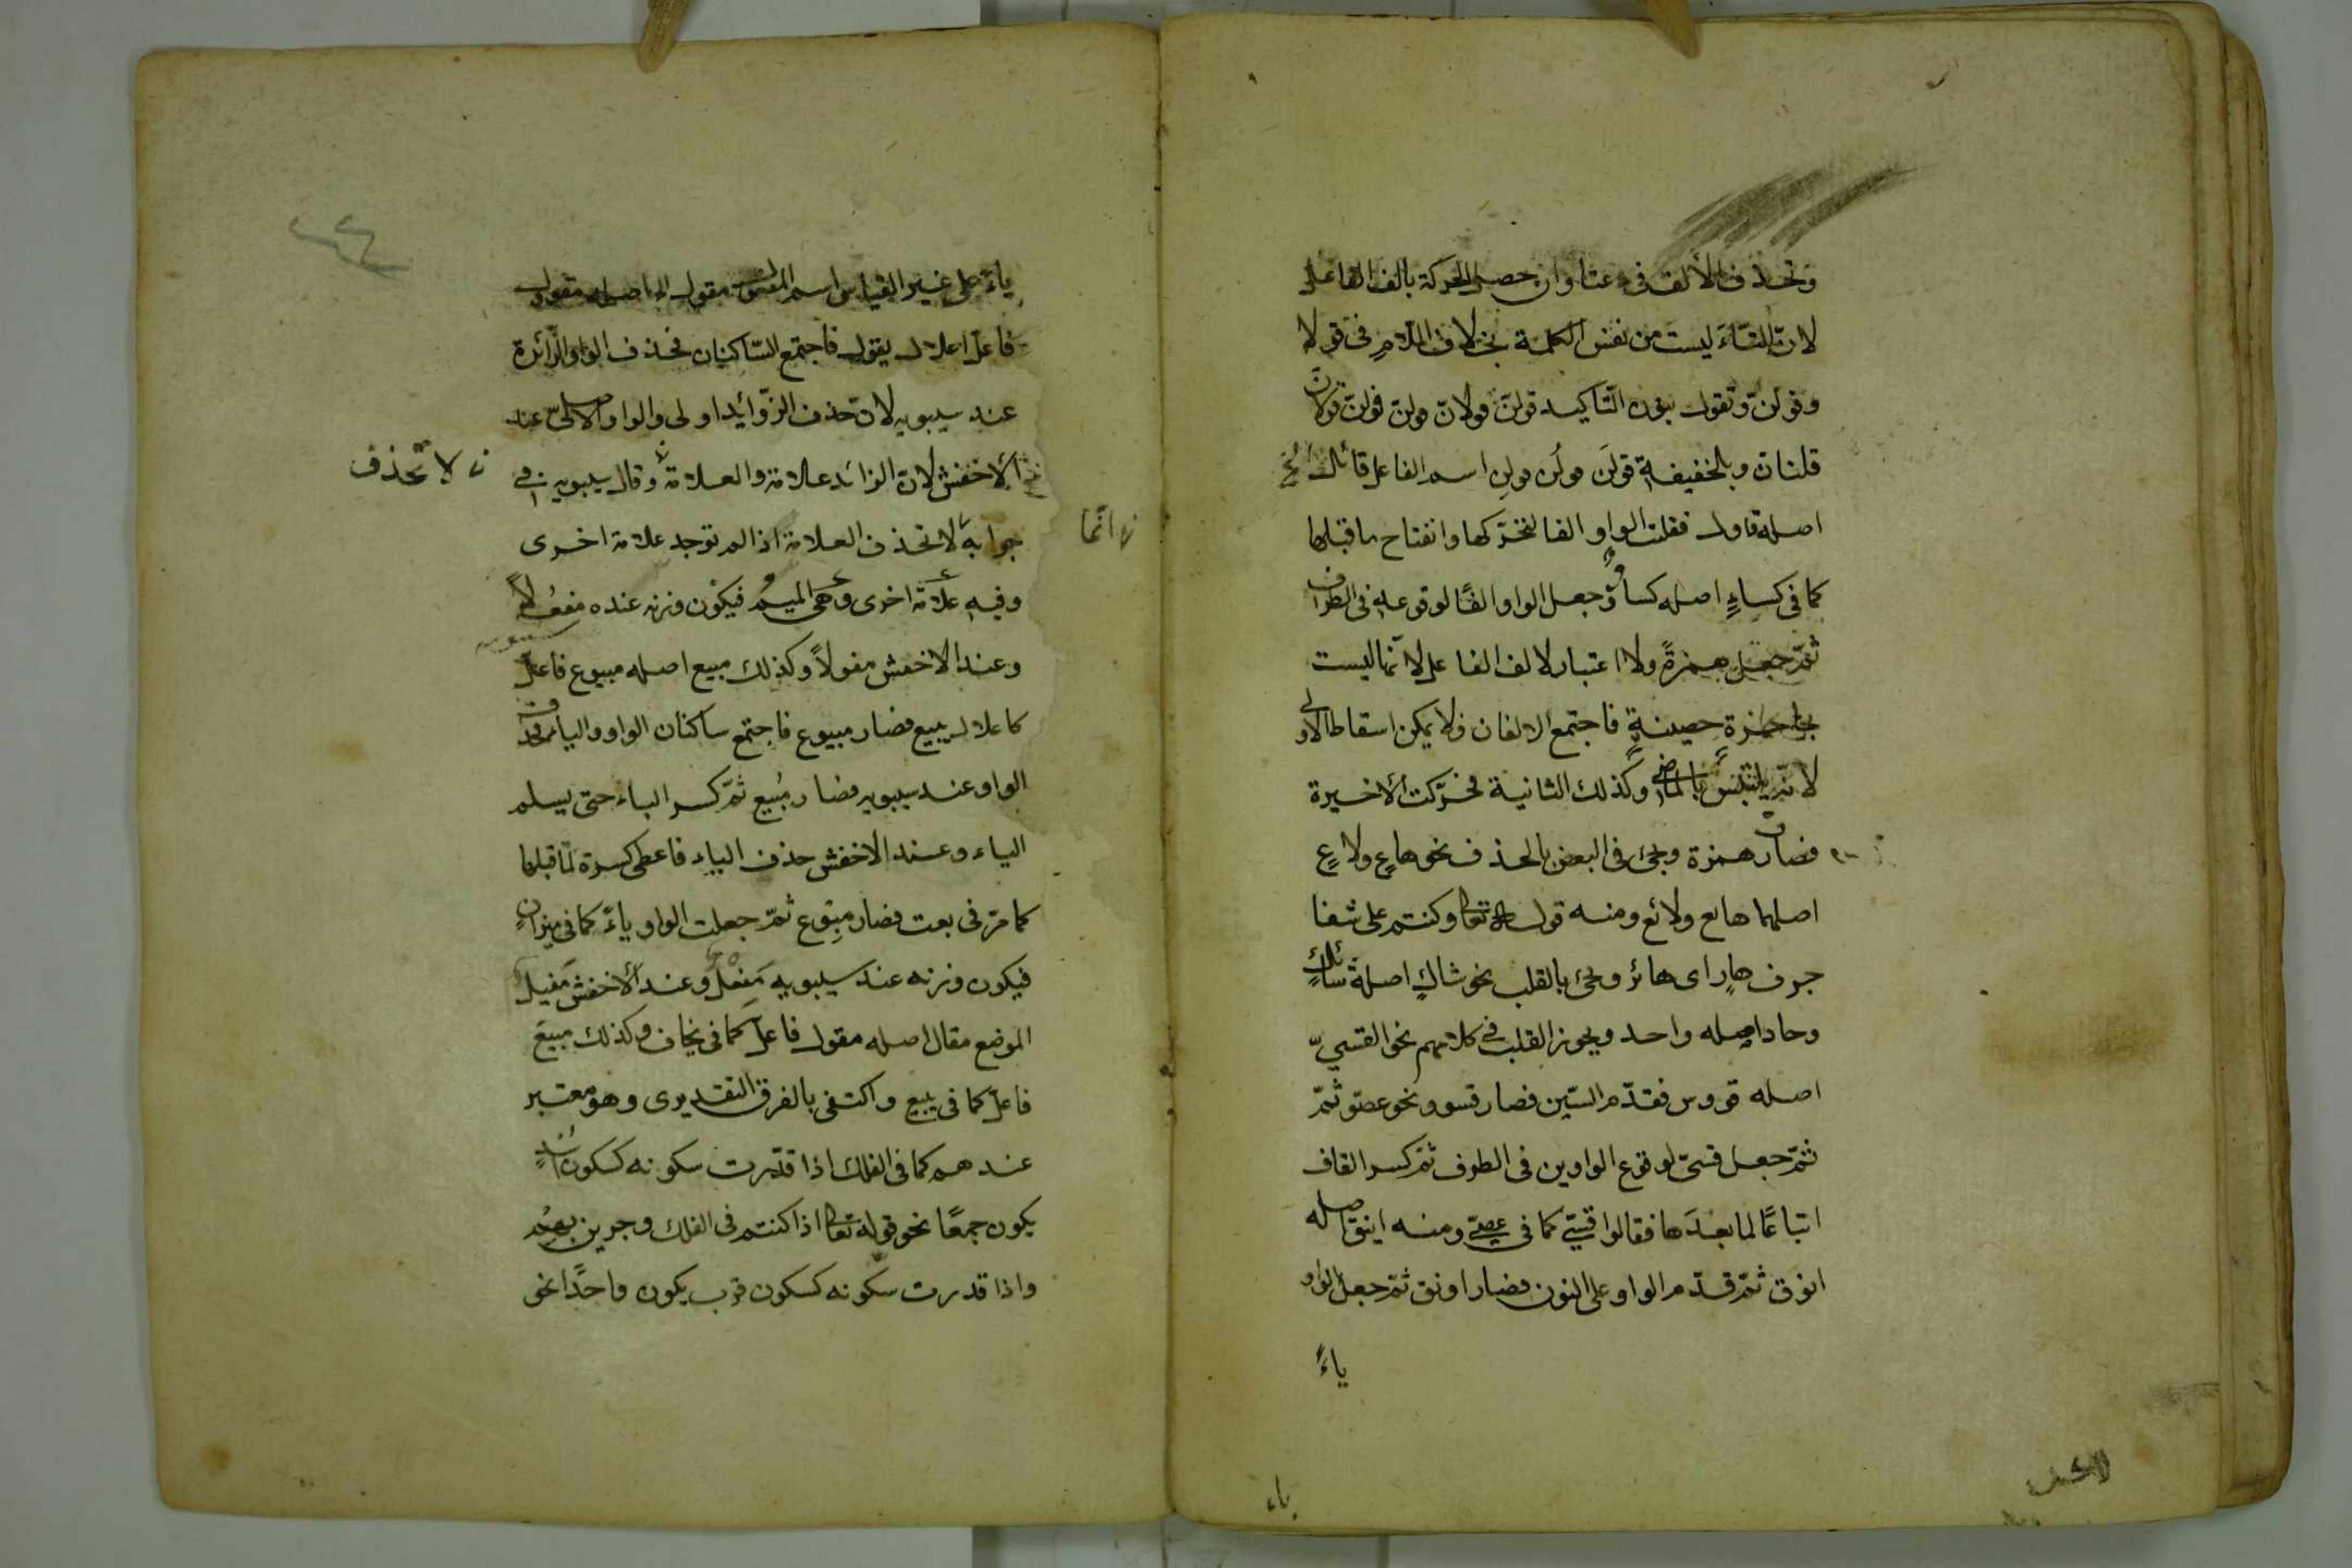 وتحذف الألف فى دعتا وان حصل الحركة بالف الفاعل
لانّ التّاءَ ليست من نفس الكلمة بخلاف اللّامِ فى قولا
وقولنّ وتقول بنون التّاكيد قولنّ قولانّ قولنّ قولنّ قولانّ
قلنانّ وبالخفيفة قولَن قولُن قولِن اسم الفاعل قائل الخ
اصله قاول فقلبت الواو الفا لتحرّكها وانفتاح ما قبلها
كما فى كساءٍ اصله كساوٌ جعل الواو الفًا لوقوعه فى الطرف
ثمّ جعل همزةً ولا اعتبار لالف الفاعل لانّها ليست
بحاجزة حصينةٍ فاجتمع الالفان ولا يمكن اسقاط الاولى
لانّه يلتبس بالماضى وكذلك الثانية فحرّكت الأخيرة
فصارت همزة ويجئ فى البعض بالحذف نحو هاعٍ ولاعٍ
اصلهما هايع ولائع ومنه قوله تعالى وكنتم على شفا
جرف هارٍ اى هائر ويجئ بالقلب نحو شاكٍ اصلة شائكٍ
وحاد اصله واحد ويجوز القلب فى كلامهم نحو القسىّ
اصله قووس فقدّم السّين فصار قسوو نحو عصوّ ثمّ
ثمّ جعل قسىّ لوقوع الواوين فى الطرف ثمّ كسر القاف
اتباعًا لما بعدَها فقالوا قِسِىّ كما فى عِصِىّ ومنه اينق اصله
انوق ثمّ قدّم الواو على النون فصار اونق ثمّ جعل الواو
ياءً
ياءً على غير القياس اسم المفعول مقول الخ اصله مقوول
فاعلّ اعلال يقول فاجتمع السّاكنان فحذف الواو الزّائدة
عند سيبويه لانّ حذف الزّوائد اولى والواو الاصلىّ عند
الأخفش لانّ الزائد علامة والعلامة وقال سيبويه فى
جوابه لا تحذف العلامة اذا لم توجد علامة اخرى
وفيه علامة اخرى وهى الميم فيكون وزنه عنده مفعُلاً
وعند الاخفش مفولاً وكذلك مبيع اصله مبيوع فاعلّ
كاعلال يبيع فصار مبيوع فاجتمع ساكنان الواو والياء فحذف
الواو عند سيبويه فصار مبُيع ثمّ كسر الباء حتى يسلم
الياء وعند الاخفش حذف الياء فاعطى كسرة لما قبلها
كما مرّ فى بعت فصار مبِوع ثمّ جعلت الواو ياءً كما فى ميزانٍ
فيكون وزنه عند سيبويه مَفعِل وعند الأخفش مَفيل
الموضع مقال اصله مقول فاعلّ كما فى يخاف وكذلك مبيع
فاعلّ كما فى يبيع واكتفى بالفرق التقديرى وهو معتبر
عندهم كما فى الفلك اذا قدّرت سكونه كسكون اُسْدٍ
يكون جمعًا نحو قوله تعالى اذا كنتم فى الفلك وجرين بهم
واذا قدرت سكونه كسكون قرب يكون واحدًا نحو
لا تحذف
انّما
ياء